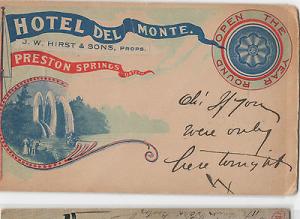 HOTEL DEL MONTE.
J. W. HIRST & SONS, PROPS.
PRESTON SPRINGS
OPEN THE YEAR ROUND
Oh! If you
were only
here tonight